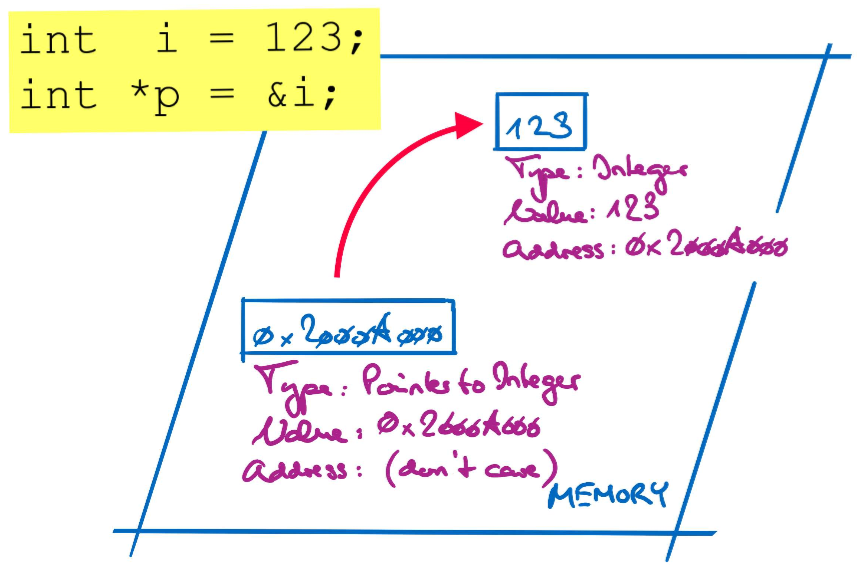 int  i = 123;
int *p = &i;
123
Type: Integer
Value: 123
Address: 0x2000A000
0x2000A000
Type: Pointer to Integer
Value: 0x2000A000
Address: (don't care)
MEMORY